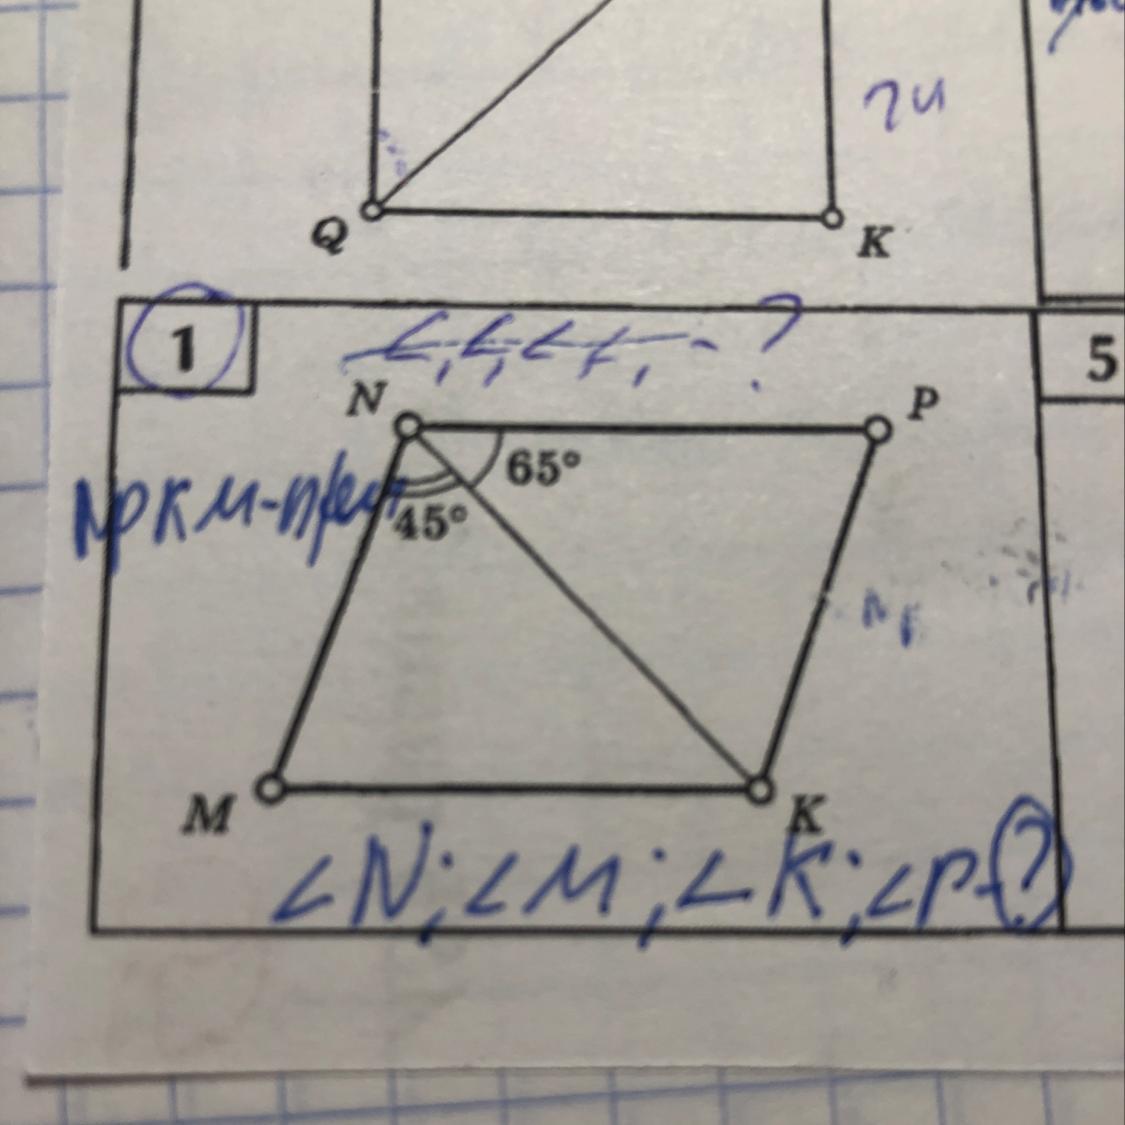 Q
K
1
5
N
P
65°
45°
NPKM-
M
K
∠N; ∠M; ∠K; ∠P-?